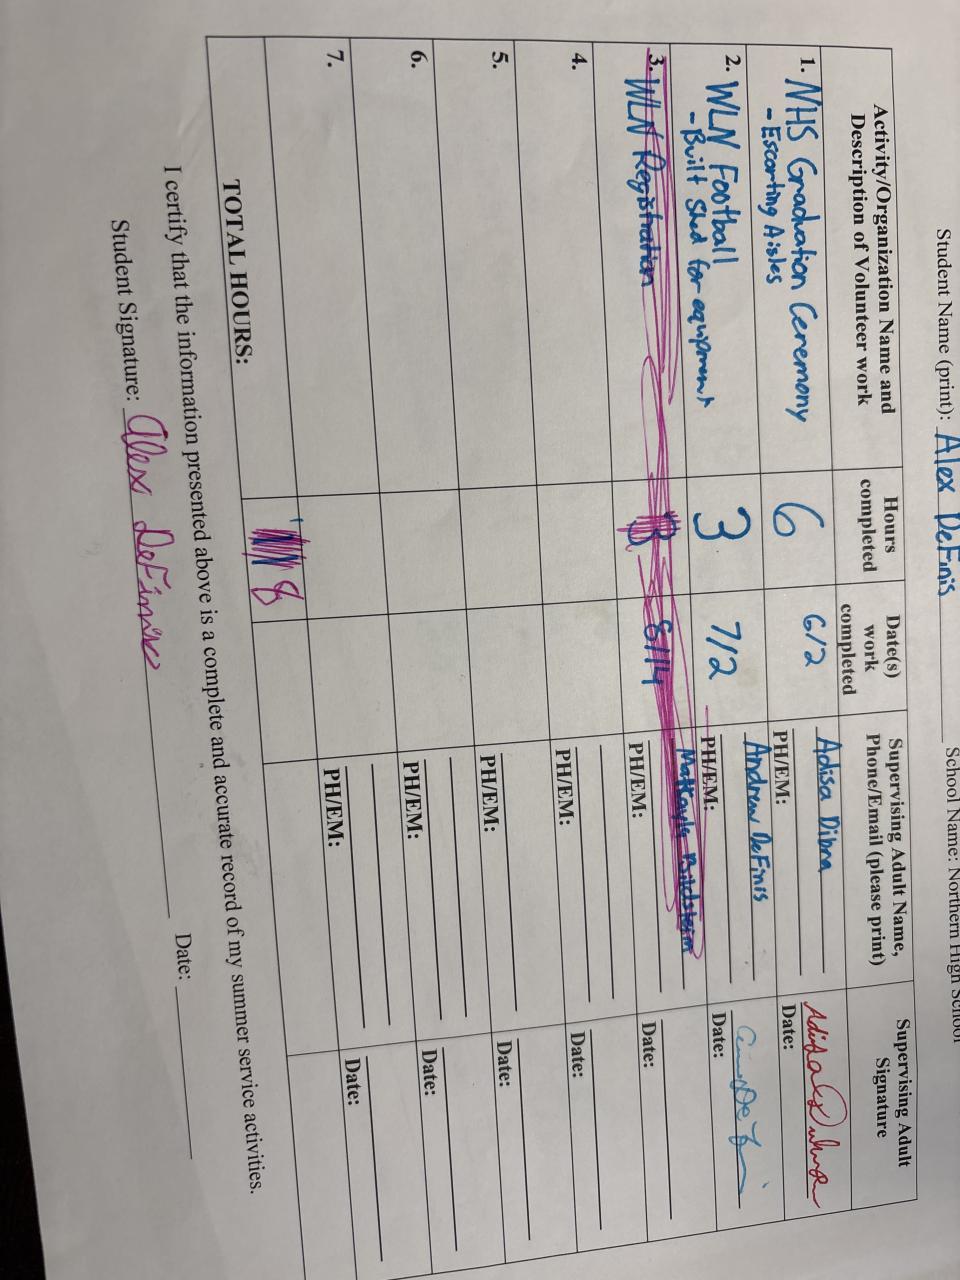 Student Name (print): Alex DeFinis School Name: Northern High School
Activity/Organization Name and Description of Volunteer work
Hours completed
Date(s) work completed
Supervising Adult Name, Phone/Email (please print)
Supervising Adult Signature
1. NHS Graduation Ceremony
- Escorting Aisles
6
6/2
Adisa Dibra
PH/EM:
Date:
2. WLN Football
- Built shed for equipment
3
7/2
Andrew DeFinis
PH/EM:
Date:
3. WLN Registration
8/14
PH/EM:
Date:
4.
PH/EM:
Date:
5.
PH/EM:
Date:
6.
PH/EM:
Date:
7.
PH/EM:
Date:
TOTAL HOURS:
8
I certify that the information presented above is a complete and accurate record of my summer service activities.
Student Signature: Alex DeFinis Date: